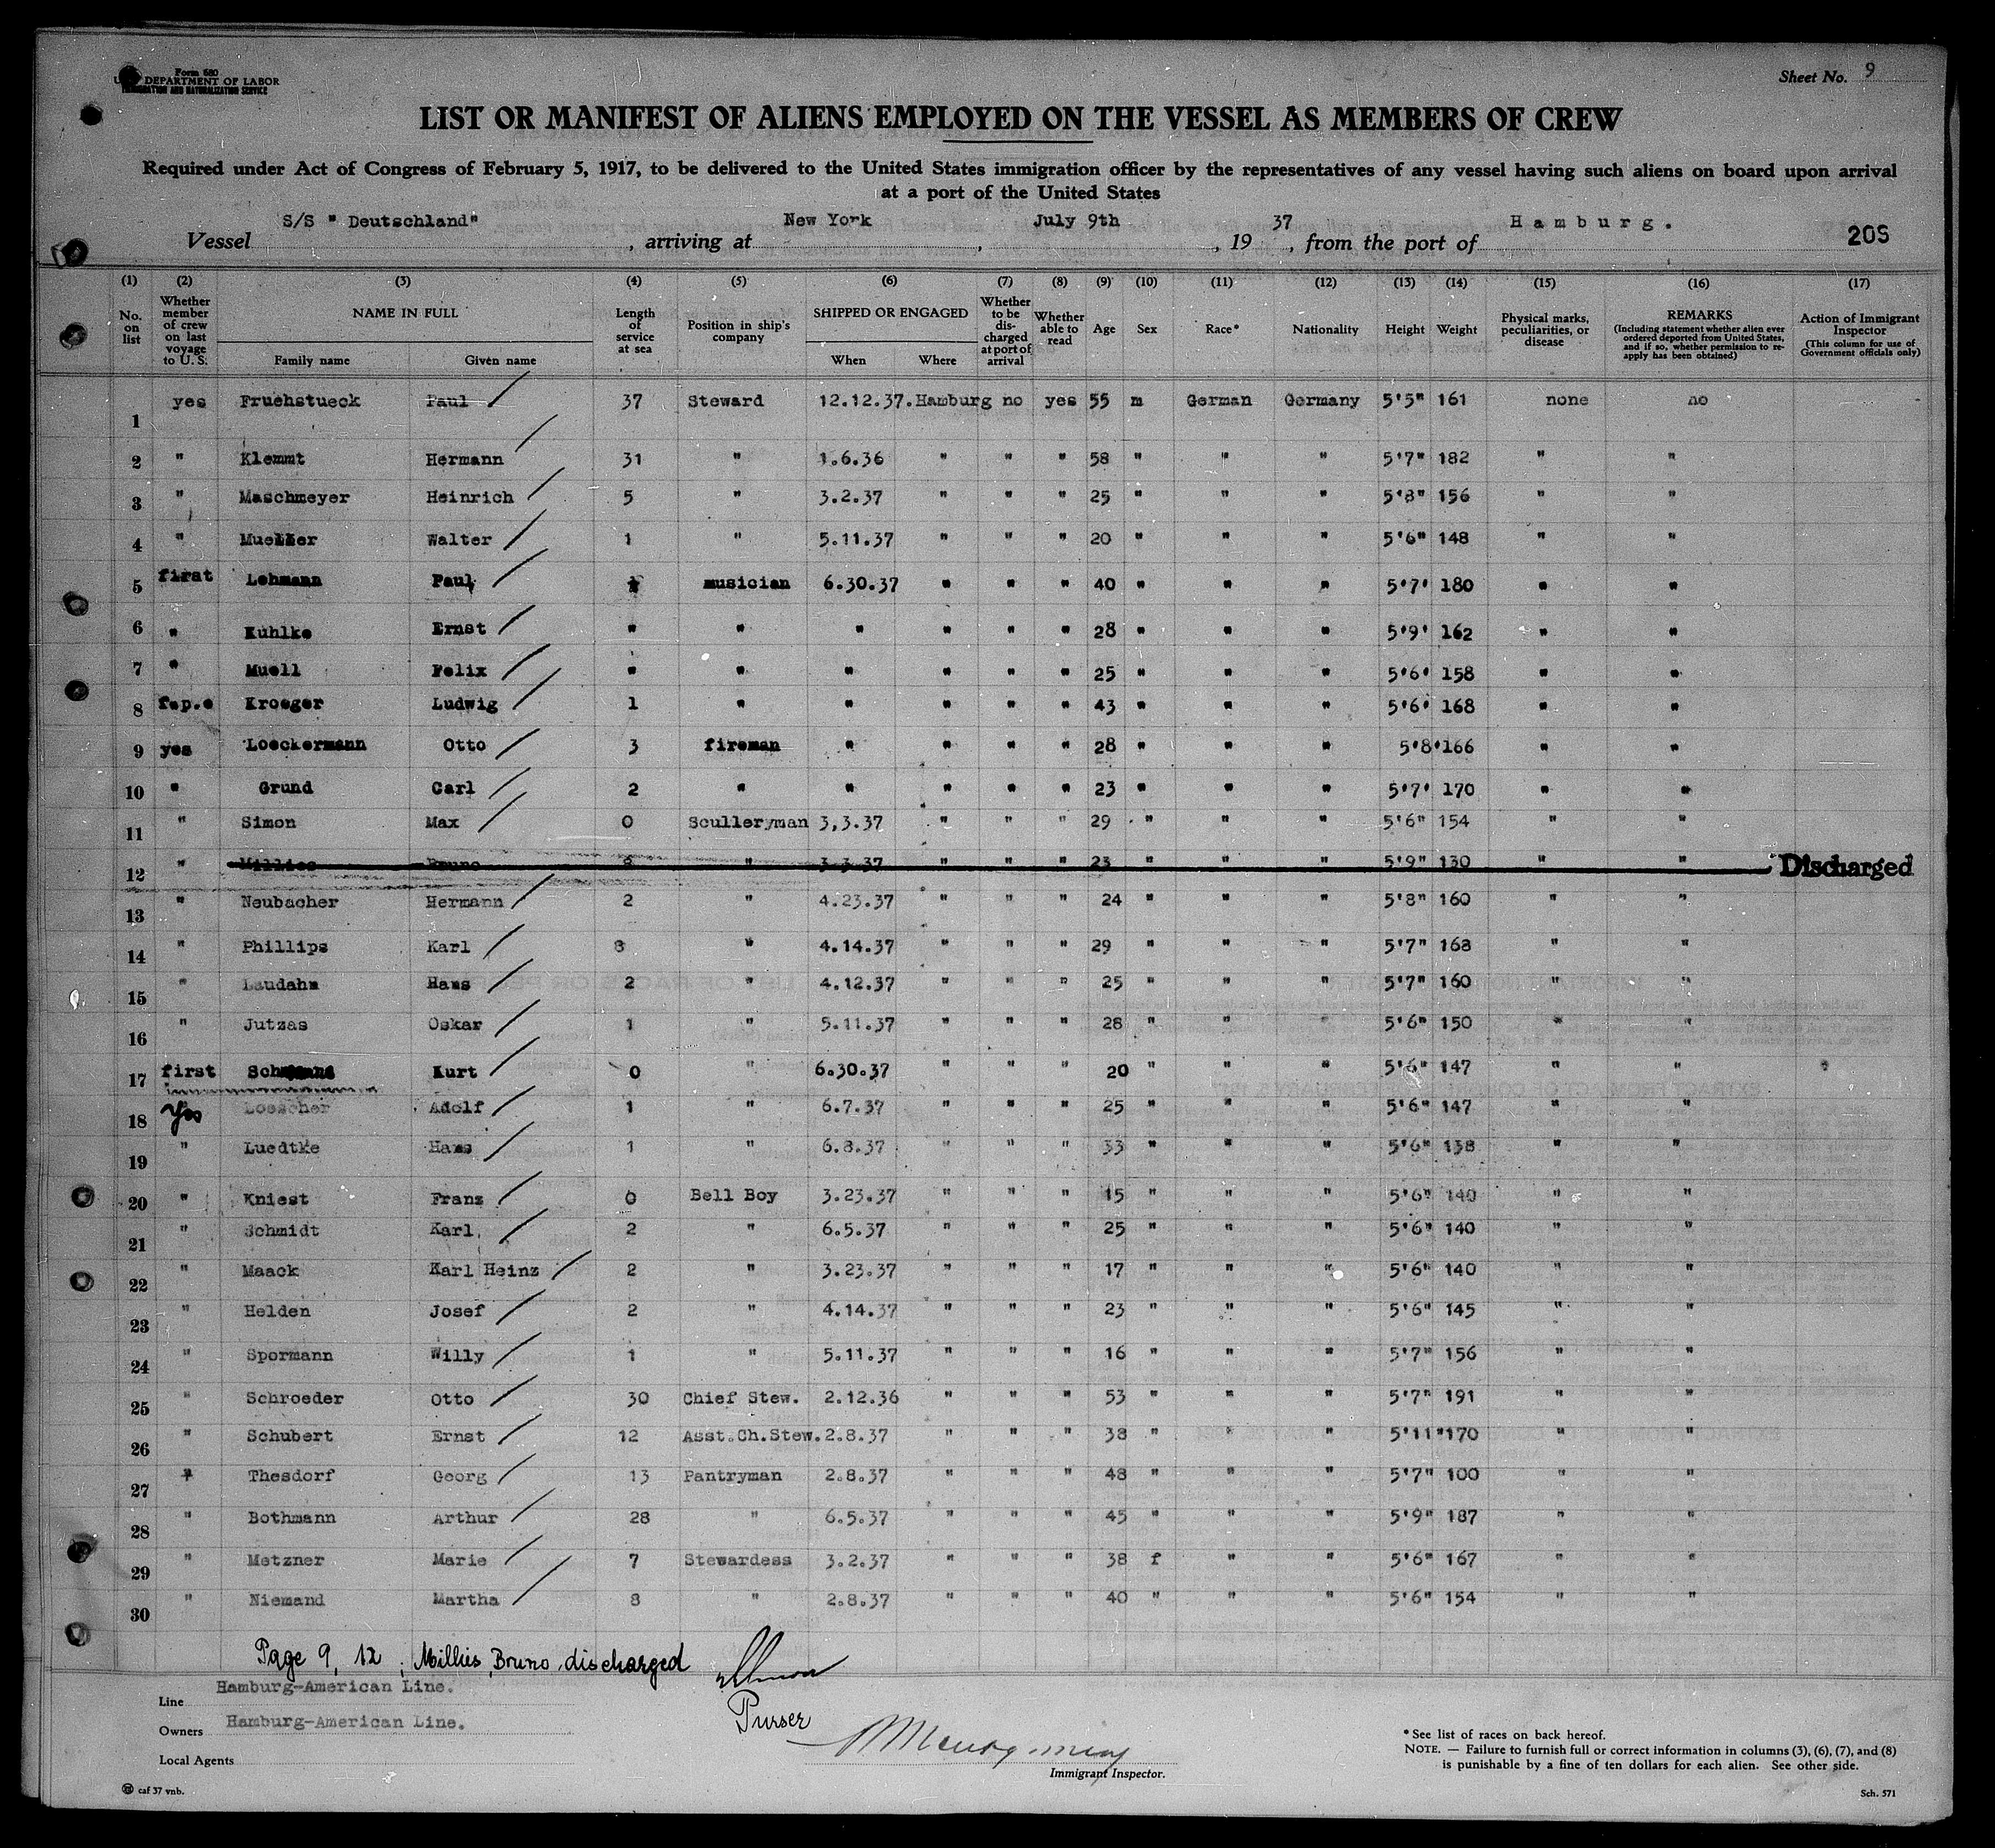 Form 680
U. S. DEPARTMENT OF LABOR
IMMIGRATION AND NATURALIZATION SERVICE
Sheet No. 9
LIST OR MANIFEST OF ALIENS EMPLOYED ON THE VESSEL AS MEMBERS OF CREW
Required under Act of Congress of February 5, 1917, to be delivered to the United States immigration officer by the representatives of any vessel having such aliens on board upon arrival
at a port of the United States
Vessel S/S " Deutschland" , arriving at New York , July 9th , 19 37 , from the port of Hamburg. 20S
(1) (2) (3) (4) (5) (6) (7) (8) (9) (10) (11) (12) (13) (14) (15) (16) (17)
No. on list Whether member of crew on last voyage to U. S. NAME IN FULL Family name Given name Length of service at sea Position in ship's company SHIPPED OR ENGAGED When Where Whether to be discharged at port of arrival Whether able to read Age Sex Race* Nationality Height Weight Physical marks, peculiarities, or disease REMARKS (Including statement whether alien ever ordered deported from United States, and if so, whether permission to reapply has been obtained) Action of Immigrant Inspector (This column for use of Government officials only)
1 yes Fruehstueck Paul 37 Steward 12.12.37. Hamburg no yes 55 m German Germany 5'5" 161 none no
2 " Klemmt Hermann 31 " 1.6.36 " " " 58 " " " 5'7" 182 " "
3 " Maschmeyer Heinrich 5 " 3.2.37 " " " 25 " " " 5'8" 156 " "
4 " Mueller Walter 1 " 5.11.37 " " " 20 " " " 5'6" 148 " "
5 first Lehmann Paul musician 6.30.37 " " " 40 " " " 5'7' 180 " "
6 " Kuhlke Ernst " " " " " " 28 " " " 5'9' 162 " "
7 " Muell Felix " " " " " " 25 " " " 5'6' 158 " "
8 f.p.e Kroeger Ludwig 1 " " " " " 43 " " " 5'6' 168 " "
9 yes Loeckermann Otto 3 fireman " " " " 28 " " " 5'8' 166 " "
10 " Grund Carl 2 " " " " " 23 " " " 5'7' 170 " "
11 " Simon Max 0 Sculleryman 3,3.37 " " " 29 " " " 5'6" 154 " "
12 " Millies Bruno " 3.3.37 " " " 23 " " " 5'9" 130 " " Discharged
13 " Neubacher Hermann 2 " 4.23.37 " " " 24 " " " 5'8" 160 " "
14 " Phillips Karl 8 " 4.14.37 " " " 29 " " " 5'7" 168 " "
15 " Laudahn Hans 2 " 4.12.37 " " " 25 " " " 5'7" 160 " "
16 " Jutzas Oskar 1 " 5.11.37 " " " 28 " " " 5'6" 150 " "
17 first Kurt 0 " 6.30.37 " " " 20 " " " 5'6" 147 " "
18 yes Loescher Adolf 1 " 6.7.37 " " " 25 " " " 5'6" 147 " "
19 " Luedtke Hans 1 " 6.8.37 " " " 33 " " " 5'6" 138 " "
20 " Kniest Franz 0 Bell Boy 3.23.37 " " " 15 " " " 5'6" 140 " "
21 " Schmidt Karl 2 " 6.5.37 " " " 25 " " " 5'6" 140 " "
22 " Maack Karl Heinz 2 " 3.23.37 " " " 17 " " " 5'6" 140 " "
23 " Helden Josef 2 " 4.14.37 " " " 23 " " " 5'6" 145 " "
24 " Spormann Willy 1 " 5.11.37 " " " 16 " " " 5'7" 156 " "
25 " Schroeder Otto 30 Chief Stew. 2.12.36 " " " 53 " " " 5'7" 191 " "
26 " Schubert Ernst 12 Asst.Ch.Stew. 2.8.37 " " " 38 " " " 5'11" 170 " "
27 " Thesdorf Georg 13 Pantryman 2.8.37 " " " 48 " " " 5'7" 100 " "
28 " Bothmann Arthur 28 " 6.5.37 " " " 45 " " " 5'9" 187 " "
29 " Metzner Marie 7 Stewardess 3.2.37 " " " 38 f " " 5'6" 167 " "
30 " Niemand Martha 8 " 2.8.37 " " " 40 " " " 5'6" 154 " "
Page 9, 12 ; Millies, Bruno, discharged
Line Hamburg-American Line.
Purser
Owners Hamburg-American Line.
Local Agents
Montgomery
Immigrant Inspector.
* See list of races on back hereof.
NOTE. — Failure to furnish full or correct information in columns (3), (6), (7), and (8)
is punishable by a fine of ten dollars for each alien. See other side.
caf 37 vnb.
Sch. 571